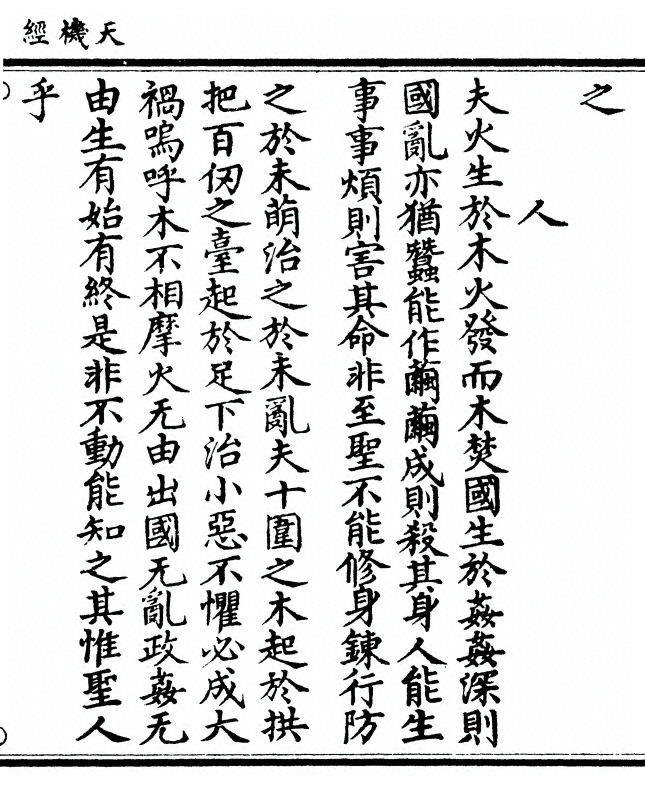 天機經
之
人
夫火生於木火發而木焚國生於姦姦深則
國亂亦猶蠶能作繭繭成則殺其身人能生
事事煩則害其命非至聖不能修身鍊行防
之於未萌治之於未亂夫十圍之木起於拱
把百仞之臺起於足下治小惡不懼必成大
禍嗚呼木不相摩火无由出國无亂政姦无
由生有始有終是非不動能知之其惟聖人
乎